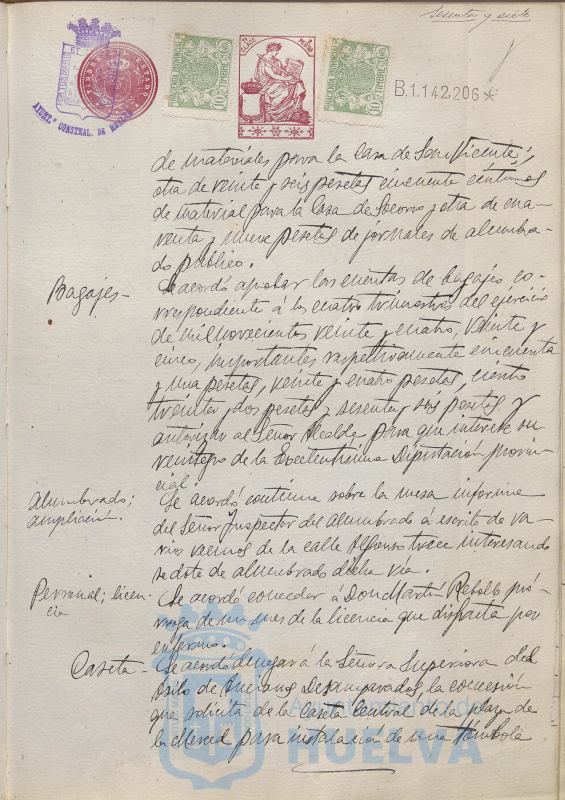 sesenta y siete
B.1.142.206*
AYUNT.º CONSTNAL. DE HUELVA
1ª CLASE
de materiales para la Casa de San Vicente;
otra de veinte y seis pesetas cincuenta céntimos
de material para la Casa de Socorro y otra de no-
venta y nueve pesetas de jornales de alumbra-
do público.
Bagajes-
Se acordó aprobar las cuentas de bagajes co-
rrespondiente á los cuatro trimestres del ejercicio
de mil novecientos veinte y cuatro, veinte y
cinco, importantes respectivamente cincuenta
y una pesetas, veinte y cuatro pesetas, ciento
treinta y dos pesetas y sesenta y seis pesetas y
autorizar al Señor Alcalde para que interese su
reintegro de la Excelentísima Diputación provin-
cial.
Alumbrado;
ampliación.
Se acordó continúe sobre la mesa informe
del Señor Inspector del alumbrado á escrito de va-
rios vecinos de la calle Alfonso trece interesando
se dote de alumbrado dicha vía.
Personal; licen-
cia
Se acordó conceder á Don Martín Rebollo pró-
rroga de un mes de la licencia que disfruta por
enfermo.
Caseta-
Se acordó denegar á la Señora Superiora del
Asilo de Ancianos Desamparados la concesión
que solicita de la Caseta Central de la plaza de
la Merced para instalación de una Tómbola
Ayuntamiento de
HUELVA